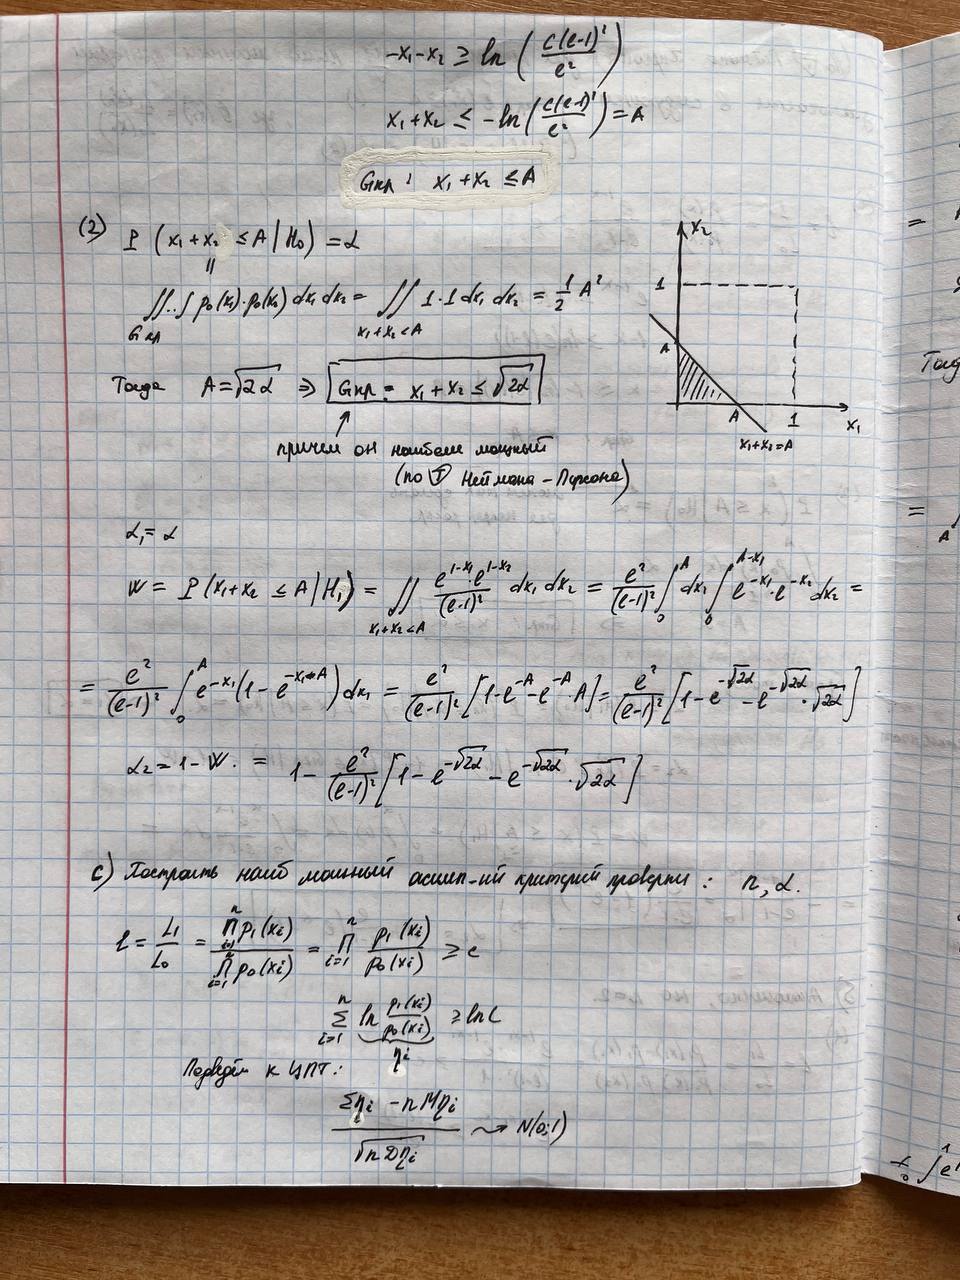 -x₁-x₂ ≥ ln (c(e-1)²/e²)
x₁+x₂ ≤ -ln(c(e-1)²/e²) = A
Gкр: x₁+x₂ ≤ A
(2) P (x₁+x₂ ≤ A | H₀) = α
||
∬..∫ p₀(x₁)·p₀(x₂) dx₁ dx₂ = ∬ 1·1 dx₁ dx₂ = 1/2 A²
Gкр x₁+x₂<A
Тогда A = √2α ⇒ Gкр = x₁+x₂ ≤ √2α
причем он наиболее мощный
(по Ⓣ Неймана-Пирсона)
x₂
1
A
A 1 x₁
x₁+x₂=A
α₁ = α
W = P (x₁+x₂ ≤ A | H₁) = ∬ e^(1-x₁)·e^(1-x₂)/(e-1)² dx₁ dx₂ = e²/(e-1)² ∫₀^A dx₁ ∫₀^(A-x₁) e^(-x₁)·e^(-x₂) dx₂ =
x₁+x₂<A
= e²/(e-1)² ∫₀^A e^(-x₁)(1-e^(-x₁+A)) dx₁ = e²/(e-1)² [1-e^(-A)-e^(-A)·A] = e²/(e-1)² [1-e^(-√2α)-e^(-√2α)·√2α]
α₂ = 1-W. = 1 - e²/(e-1)² [1-e^(-√2α)-e^(-√2α)·√2α]
c) Построить наиб мощный асимп-ий критерий проверки: n, α.
l = L₁/L₀ = ∏ᵢ₌₁ⁿ p₁(xᵢ)/∏ᵢ₌₁ⁿ p₀(xᵢ) = ∏ᵢ₌₁ⁿ p₁(xᵢ)/p₀(xᵢ) ≥ c
∑ᵢ₌₁ⁿ ln p₁(xᵢ)/p₀(xᵢ) ≥ ln C
ηᵢ
Подведём к ЦПТ:
(Σηᵢ - nMηᵢ)/√nDηᵢ ⇝ N(0;1)
=
=
A